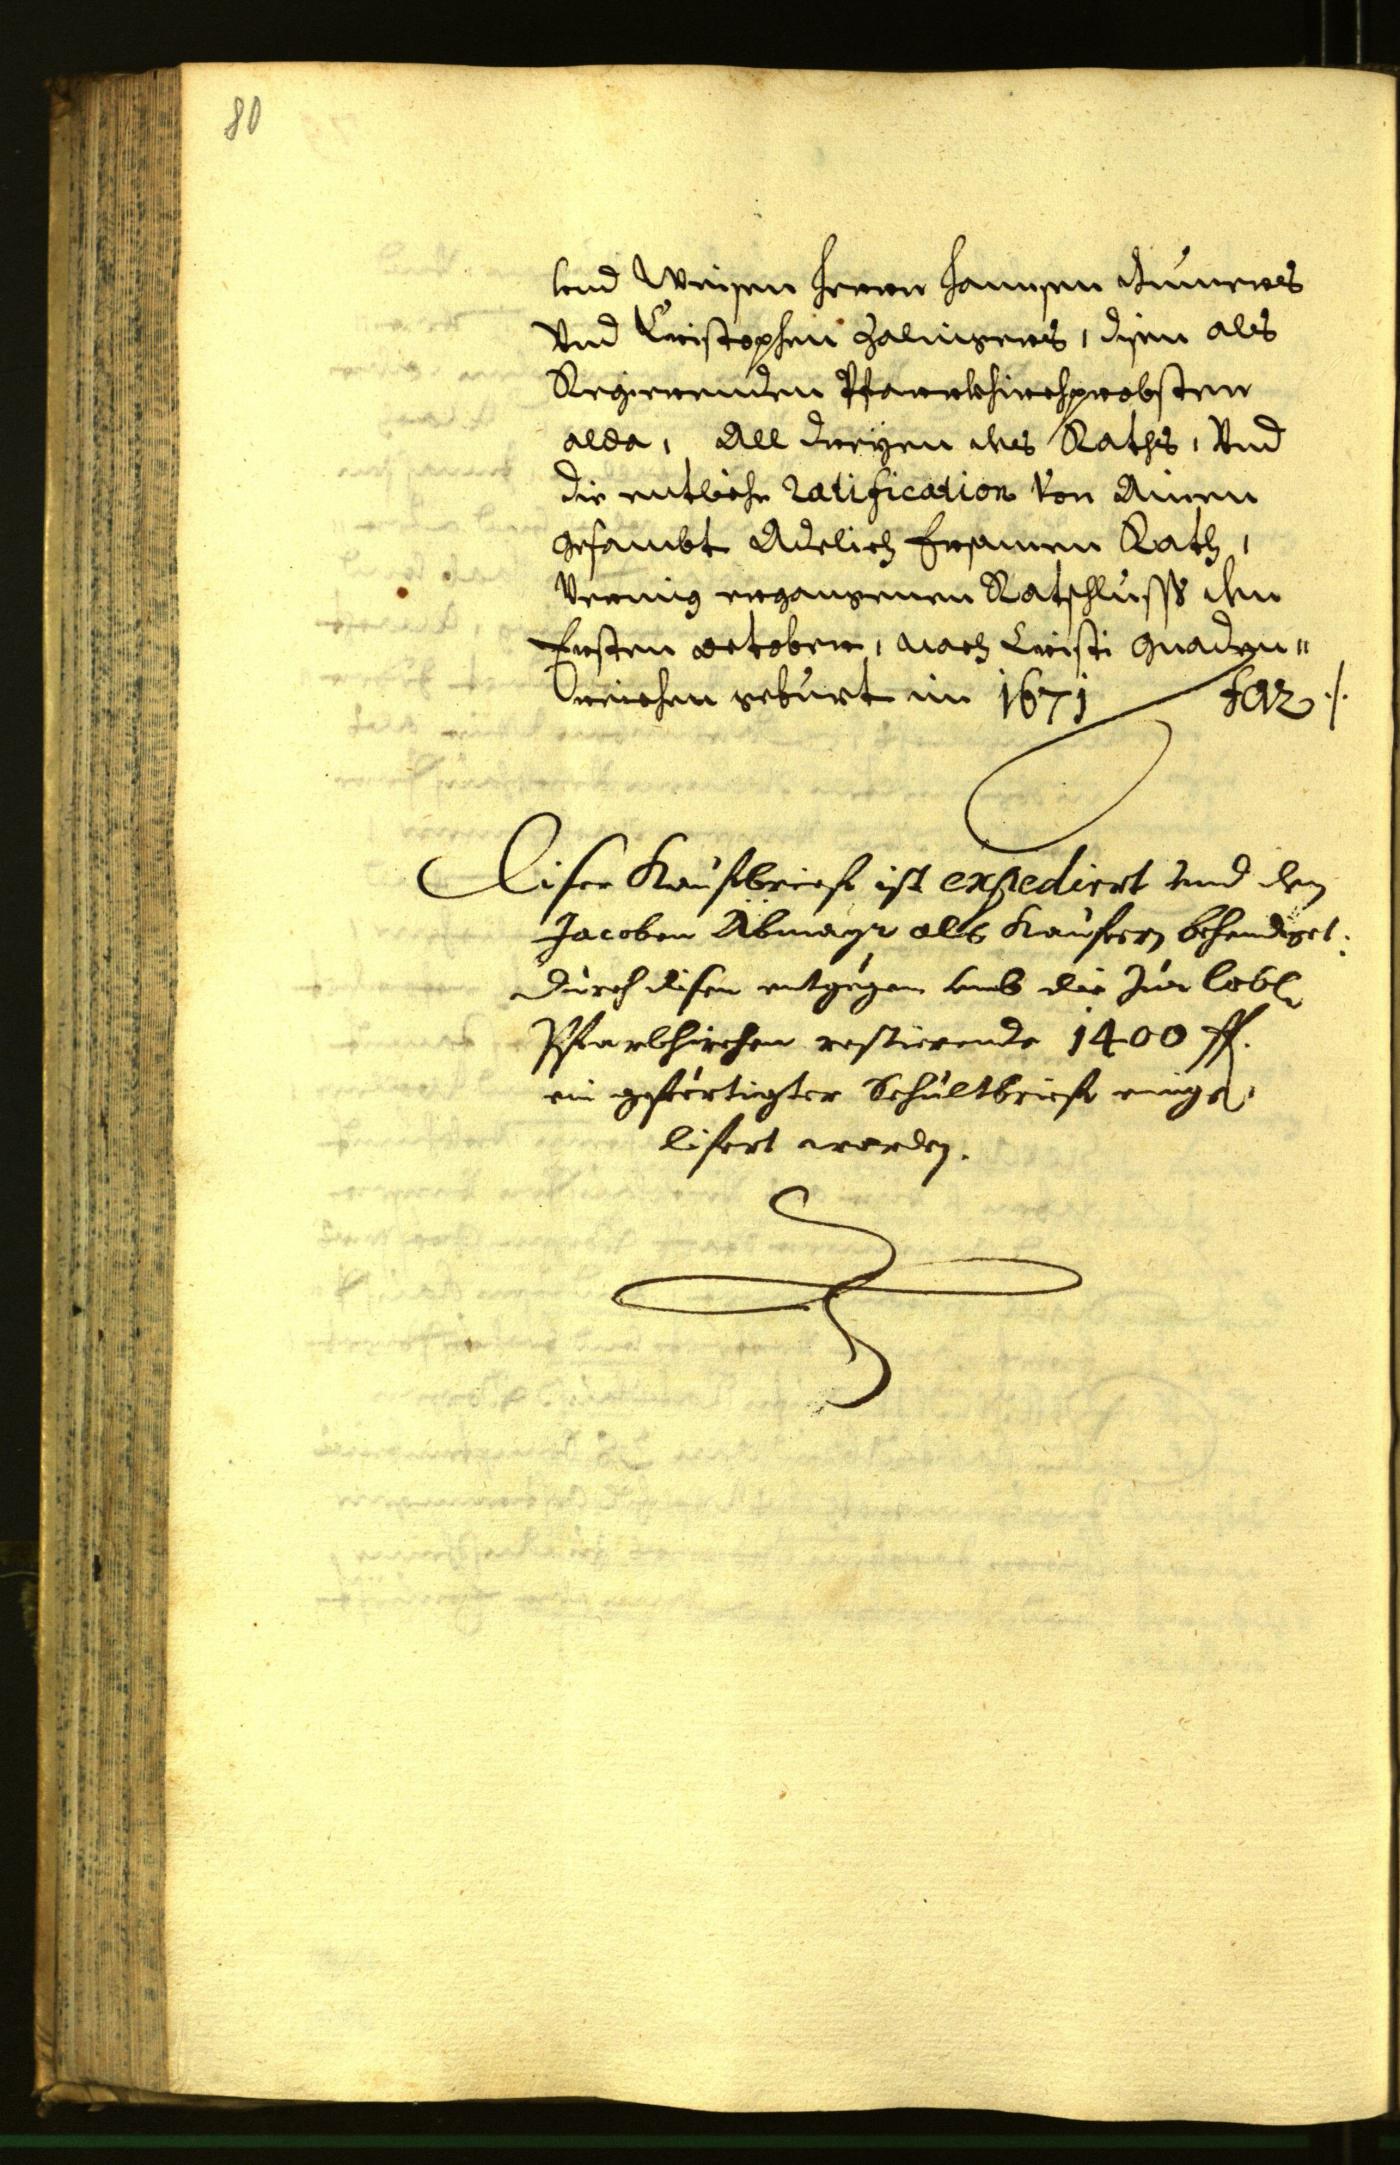 80
und Weisen herrn hannsen
Vnd Cristophen Zalingers, disen als
Regierenden Pfarrkhirchprobsten
alda, All dreyen des Raths, Vnd
die entliche ratification von Ainem
gesambt Adelich Ersamen Rath,
Vermig ergangenen Ratschluss den
Ersten october, nach Cristi gnaden"
reichen geburt im 1671
Diser Kaufbrief ist expediert und dem
Jacoben als Kaufern behendiget.
durch disen entgegen umb die zur löbl
Pfarkhirchen restierende 1400 fl.
ein geförtigter Schultbrief einge,
lifert worden.